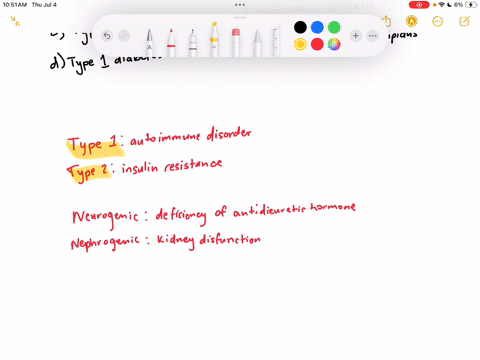 10:51AM Thu Jul 4
6%
d) Type 1
Type 1: autoimmune disorder
Type 2: insulin resistance
Neurogenic: deficiency of antidieuretic hormone
Nephrogenic: Kidney disfunction